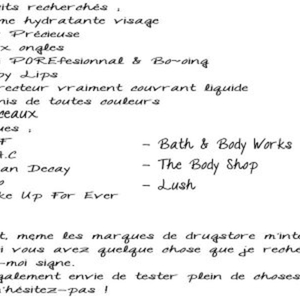 its recherchés :
me hydratante visage
Précieuse
x ongles
POREfesionnal & Bo-oing
by Lips
recteur vraiment couvrant liquide
nis de toutes couleurs
ceaux
ues :
F
A.C
an Decay
ke Up For Ever
- Bath & Body Works
- The Body Shop
- Lush
t, même les marques de drugstore m'inté
i vous avez quelque chose que je reche
-moi signe.
galement envie de tester plein de choses
'hésitez-pas !